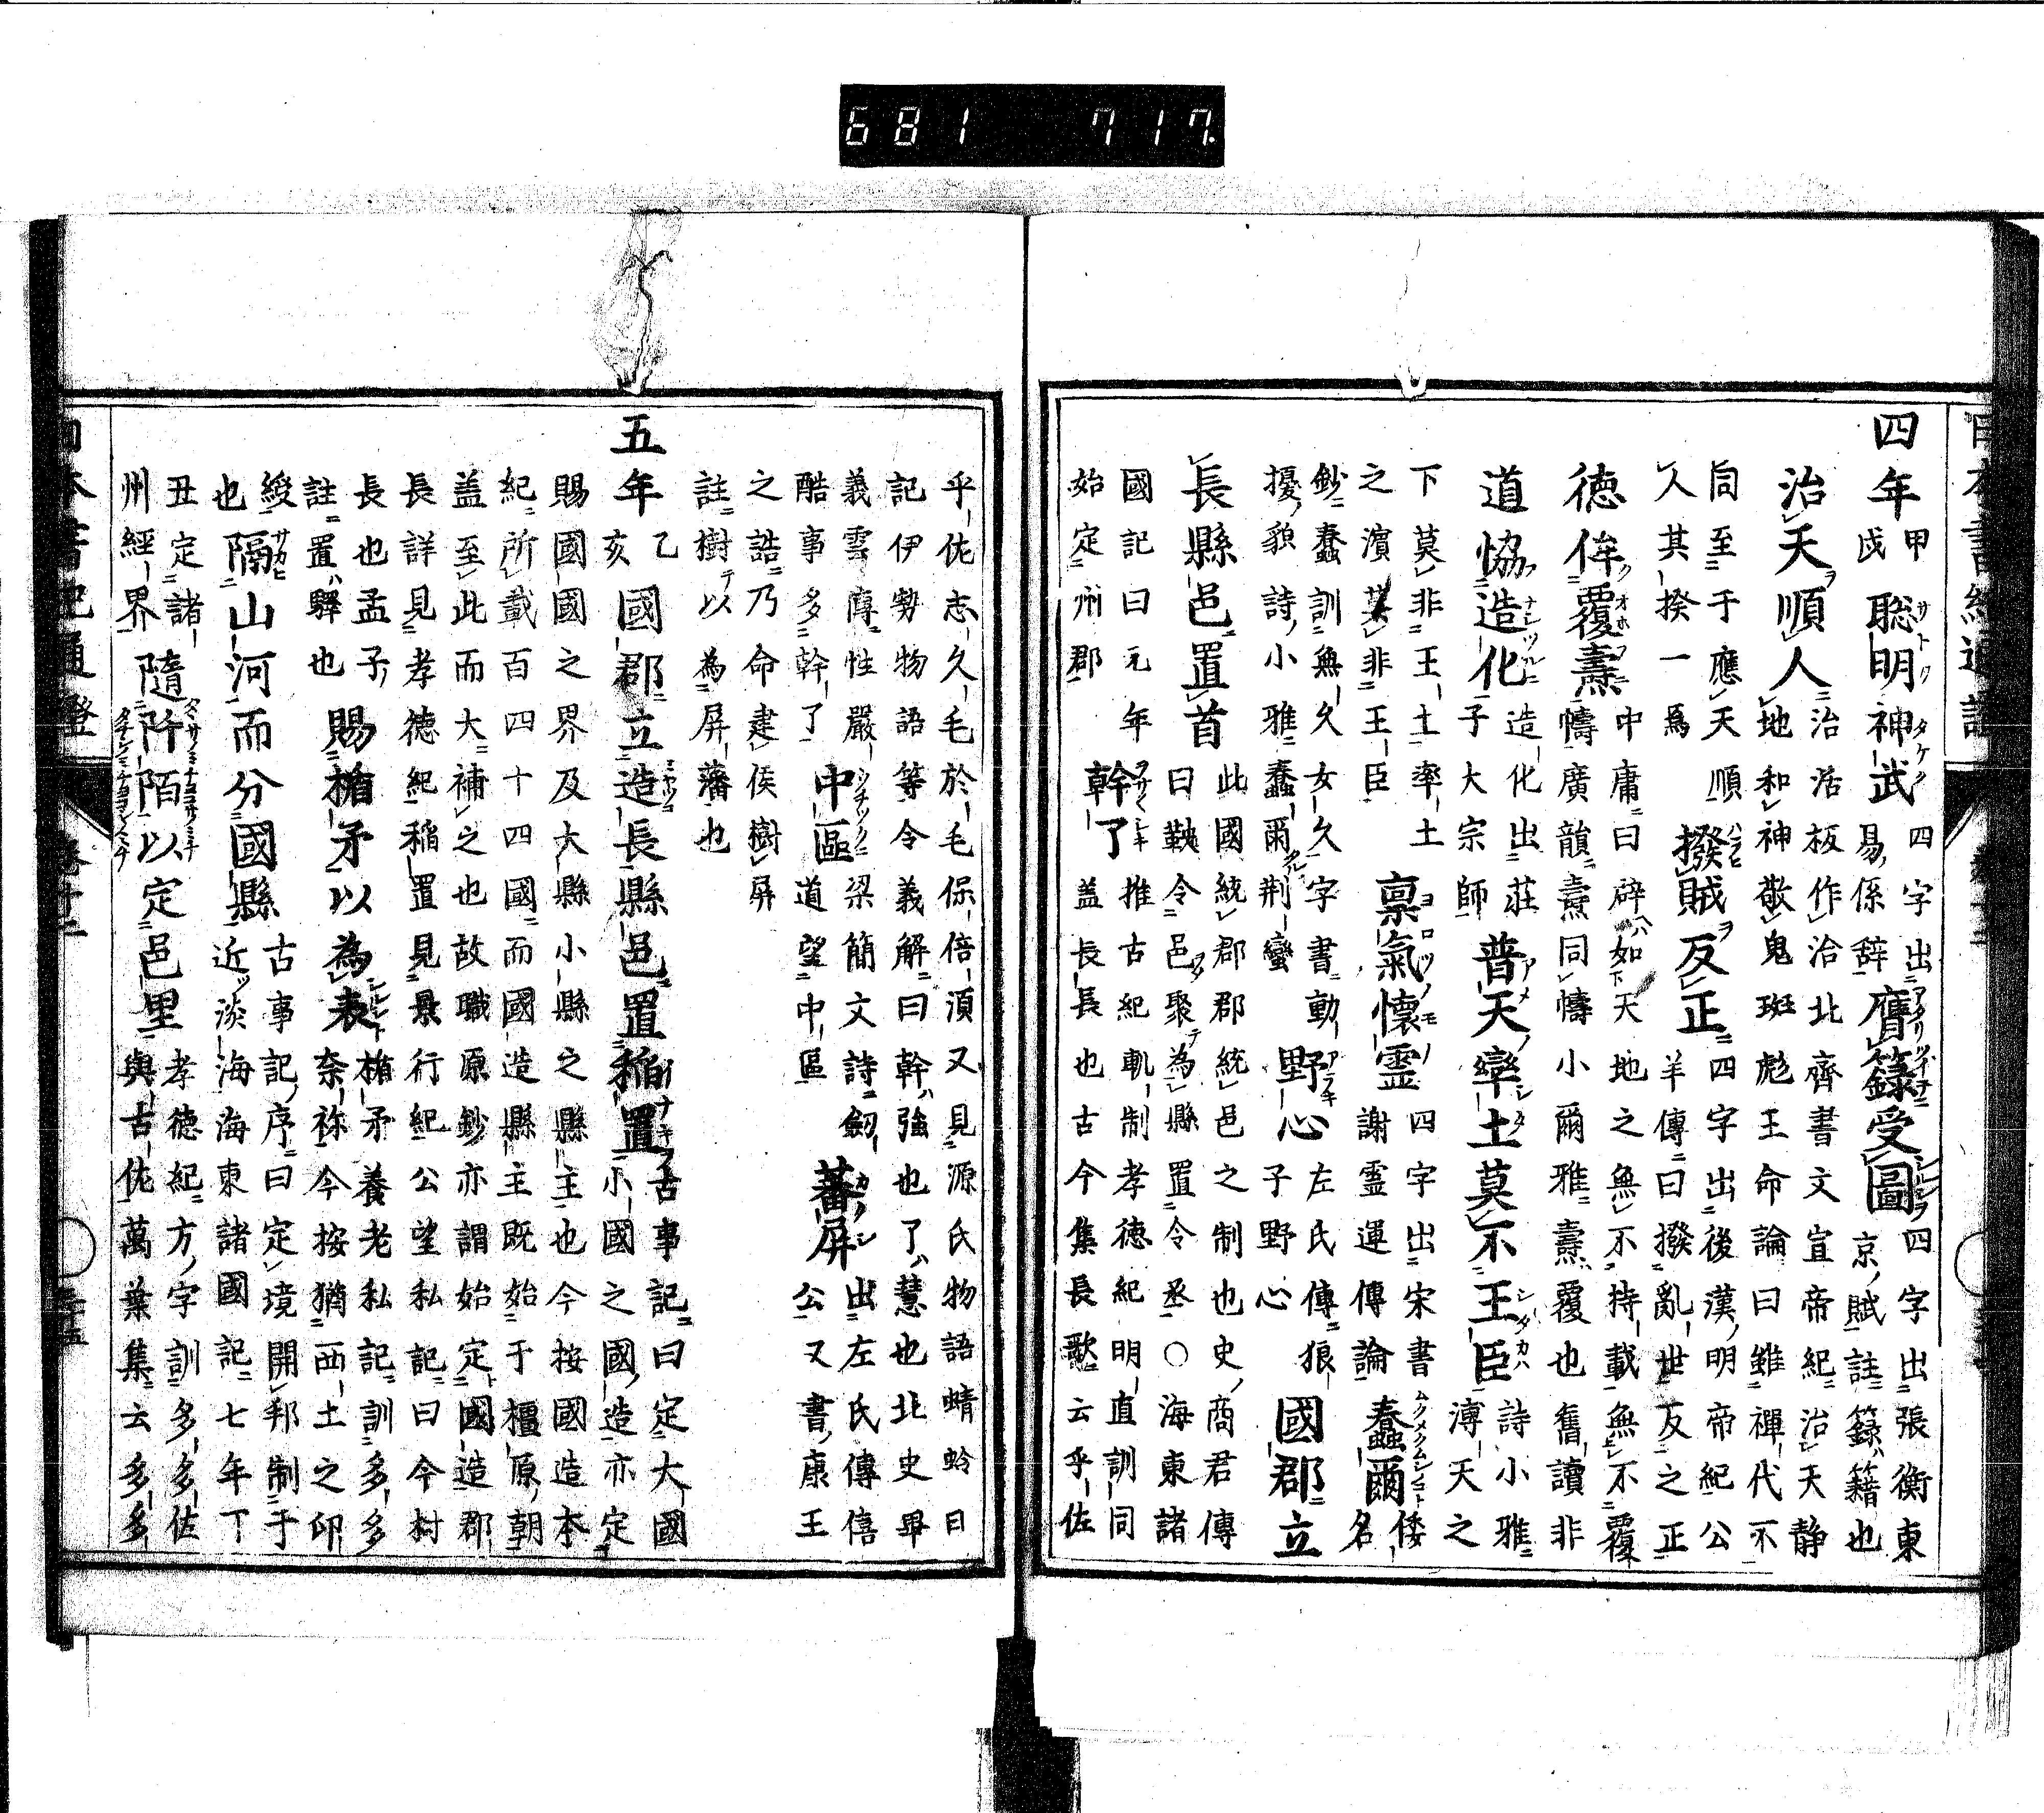 四年甲戌聡明神武四字出易係辞膺籙受圖四字出張衡東京賦註籙籍也
治天順人治活板作治北齊書文宣帝紀治天静地和神敬鬼班彪王命論曰雖禪代不
同至于應天順人其揆一焉撥賊反正四字出後漢明帝紀公羊傳曰撥亂世反之正
徳侔覆燾中庸曰辟如天地之無不持載無不覆幬廣韻燾同幬小爾雅燾覆也舊讀非
道恊造化造化出莊子大宗師普天率土莫不王臣詩小雅溥天之
下莫非王土率土之濵莫非王臣禀氣懐霊四字出宋書謝霊運傳論蠢爾倭名
鈔蠢訓無久女久字書動擾貌詩小雅蠢爾荆蠻野心左氏傳狼子野心國郡立
長縣邑置首此國統郡郡統邑之制也史商君傳曰鞅令邑聚為縣置令丞○海東諸
國記曰元年始定州郡幹了推古紀軌制孝徳紀明直訓同盖長長也古今集長歌云乎佐
乎佐志久毛於毛保倍湏又見源氏物語蜻蛉日記伊勢物語等令義解曰幹強也了慧也北史畢
義雲傳性嚴酷事多幹了中區梁簡文詩劒道望中區蕃屏出左氏傳僖公又書康王
之誥乃命建侯樹屏註樹以為屏藩也
五年乙亥國郡立造長縣邑置稲置古事記曰定大國小國之國造亦定
賜國國之界及大縣小縣之縣主也今按國造本紀所載百四十四國而國造縣主既始于橿原朝
盖至此而大補之也故職原鈔亦謂始定國造郡長詳見孝徳紀稲置見景行紀公望私記曰今村
長也孟子註置驛也賜楯矛以為表楯矛養老私記訓多多奈祢今按猶西土之印
綬也隔山河而分國縣古事記序曰定境開邦制于近淡海海東諸國記七年丁
丑定諸州經界隨阡陌以定邑里孝徳紀方字訓多多佐與古佐萬葉集云多多
日本書紀通證
巻十二
三十五
681 717